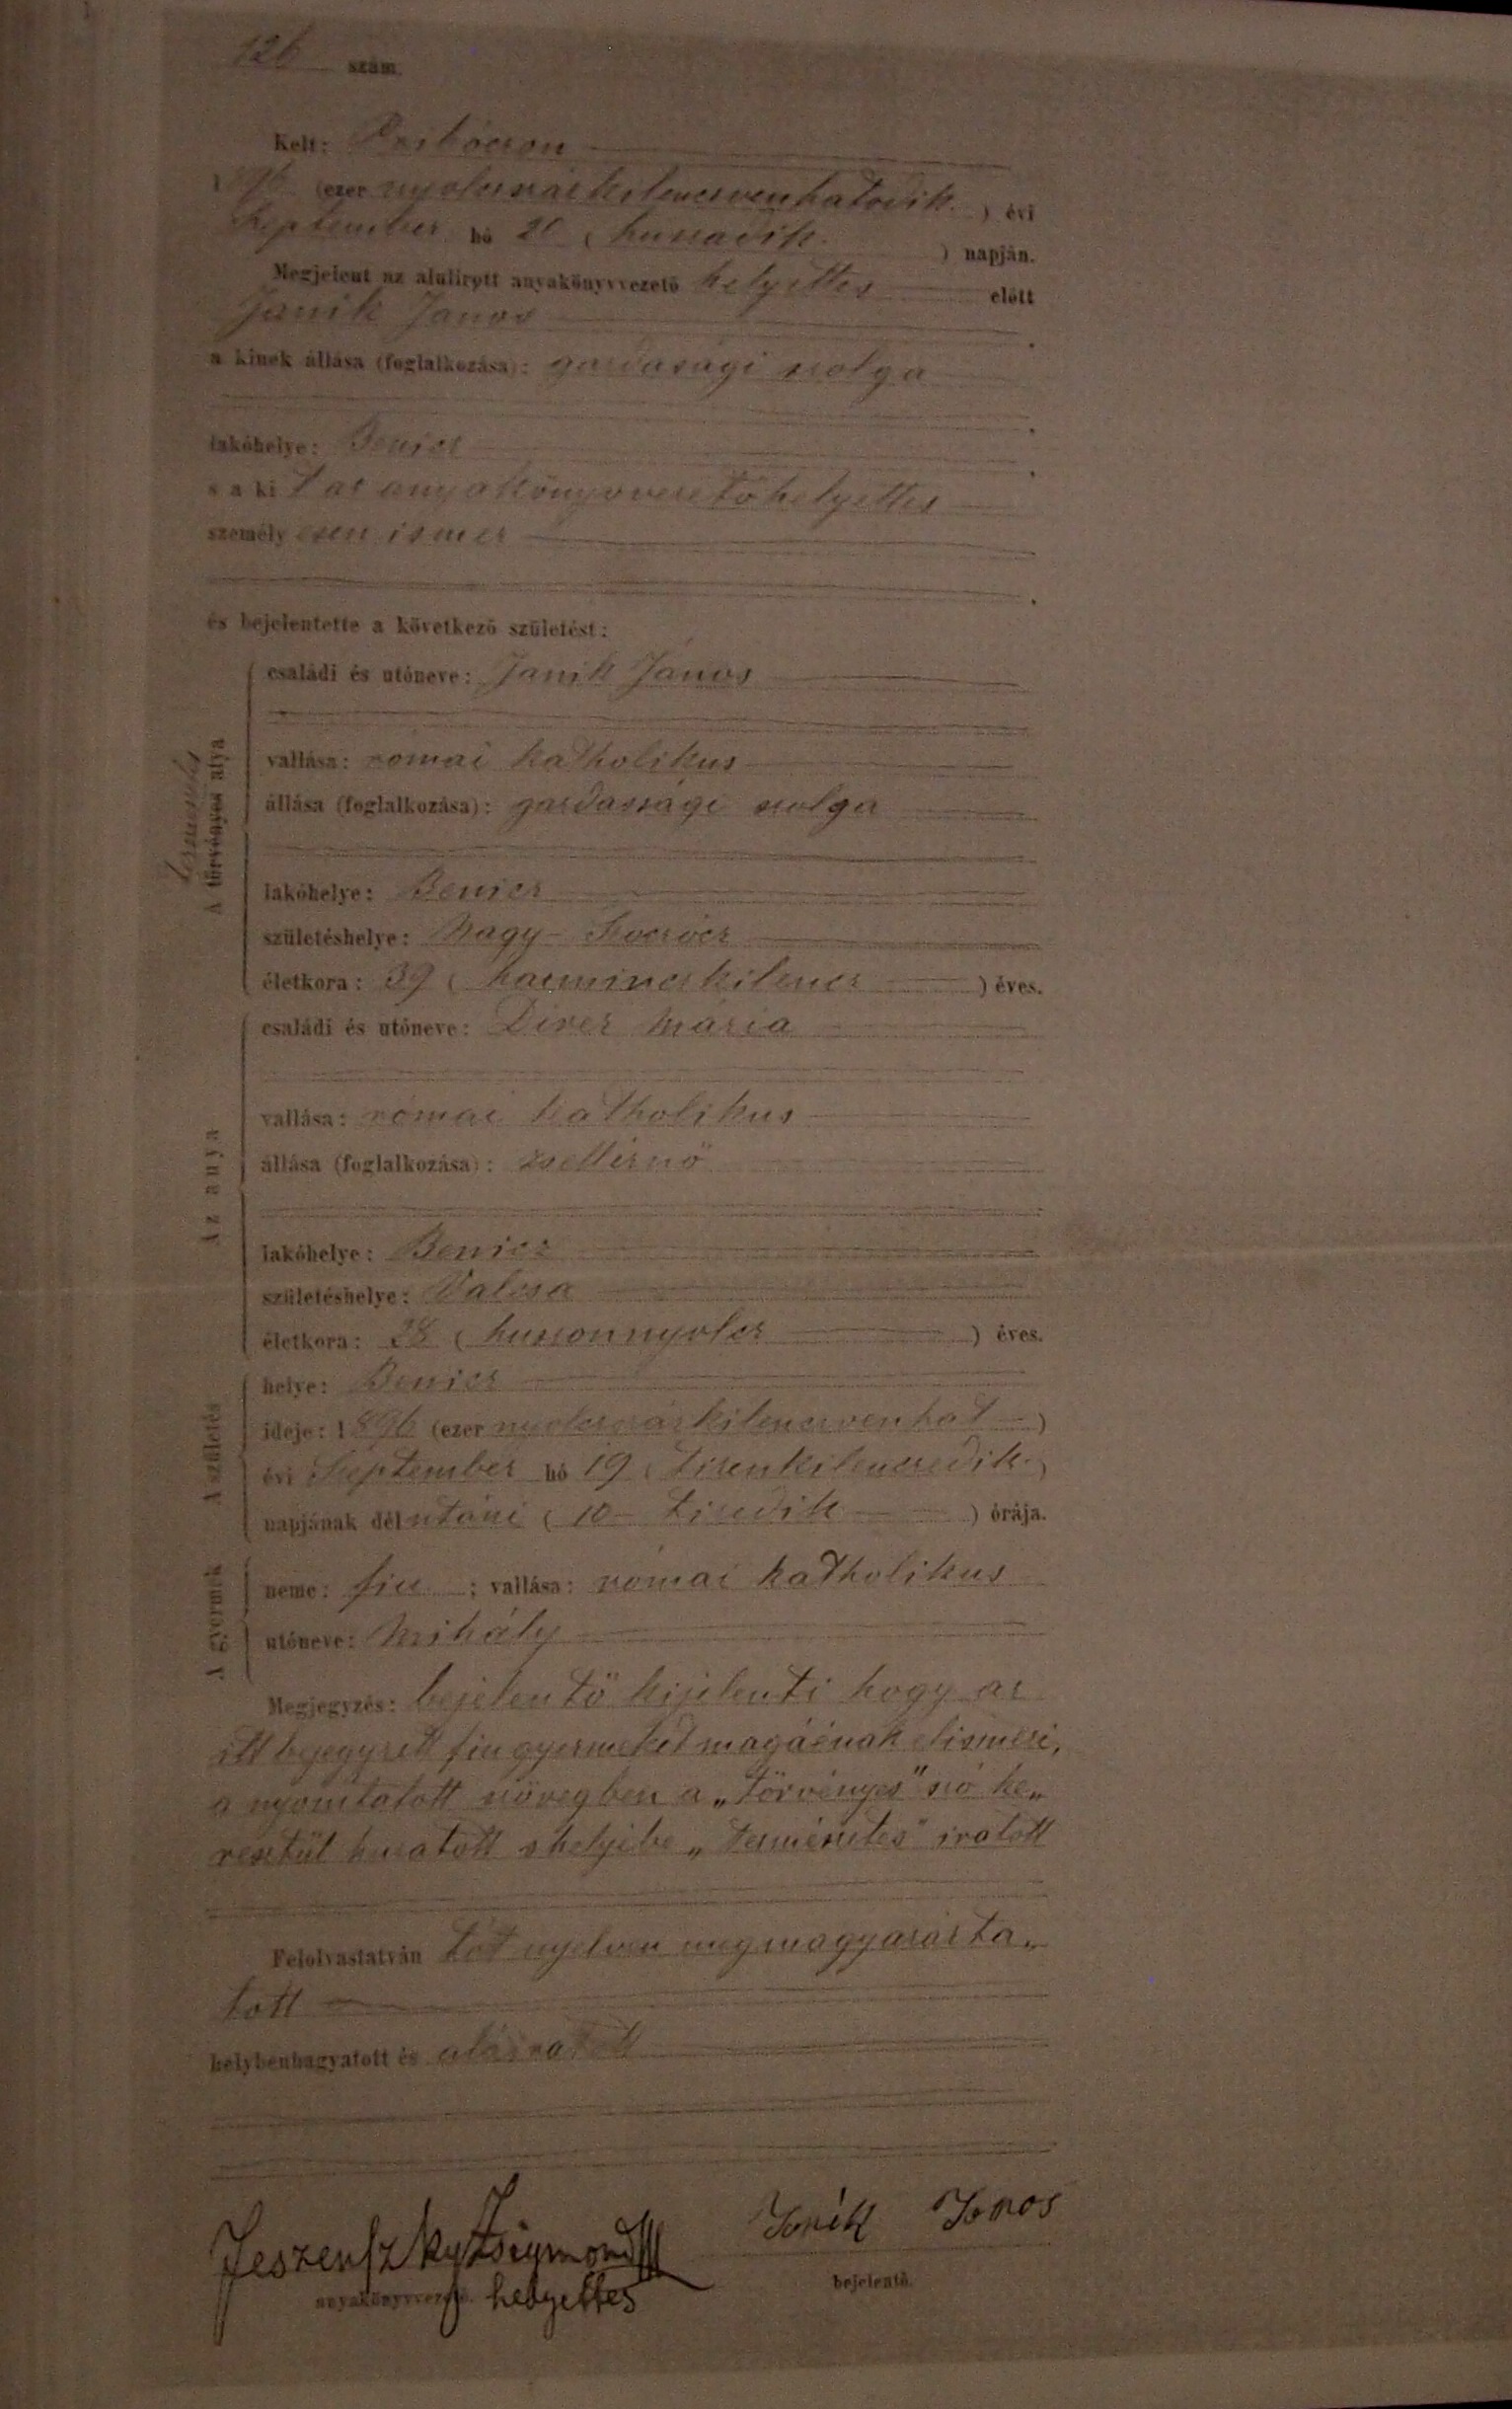 126 szám.
Kelt: Pribóczon
1896 (ezer nyolczszázkilenczvenhatodik ) évi
Szeptember hó 20 (huszadik. ) napján.
Megjelent az alulirott anyakönyvvezető helyettes előtt
Janik János
a kinek állása (foglalkozása): gazdasági szolga
lakóhelye: Benicz
s a ki t az anyakönyvvezetőhelyettes
személy esen ismer
és bejelentette a következő születést:
családi és utóneve: Janik János
természetes
A törvényes atya
vallása: római katholikus
állása (foglalkozása): gazdassági szolga
lakóhelye: Benicz
születéshelye: Nagy-
életkora: 39 ( harminczkilencz ) éves.
családi és utóneve: Diver Mária
Az anya
vallása: római katholikus
állása (foglalkozása): zsellérnő
lakóhelye: Benicz
születéshelye: Valcsa
életkora: 28 ( huszonnyolcz ) éves.
A születés
helye: Benicz
ideje: 1896 (ezer nyolczszázkilenczvenhat )
évi Szeptember hó 19 ( tizenkilenczedik )
napjának délutáni ( 10 - tizedik ) órája.
A gyermek
neme: fiu ; vallása: római katholikus
utóneve: Mihály
Megjegyzés: bejelentő kijelenti hogy az
itt bejegyzett fiu gyermeket magáénak elismeri,
a nyomtatott szövegben a „törvényes" szó ke„
resztül huzatott s helyébe „természetes" iratott
Felolvastatván tót nyelven megmagyarázta„
tott
helybenhagyatott és aláiratott
Jeszenszky Zsigmond Janik Janos
anyakönyvvezető. helyettes bejelentő.